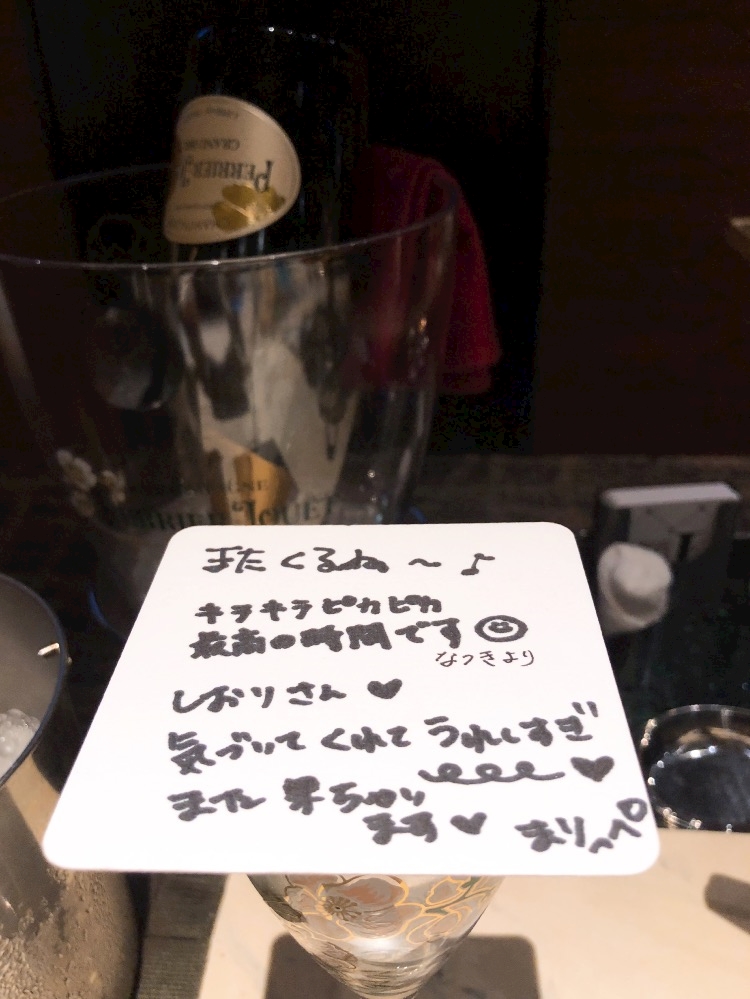 PERRIER-JOUËT
GRAND
PERRIER-JOUËT
またくるね〜♪
キラキラピカピカ
最高の時間です
なつきより
しおりさん♥
気づいてくれてうれしすぎ
♥
また
ます♥ まりっぺ